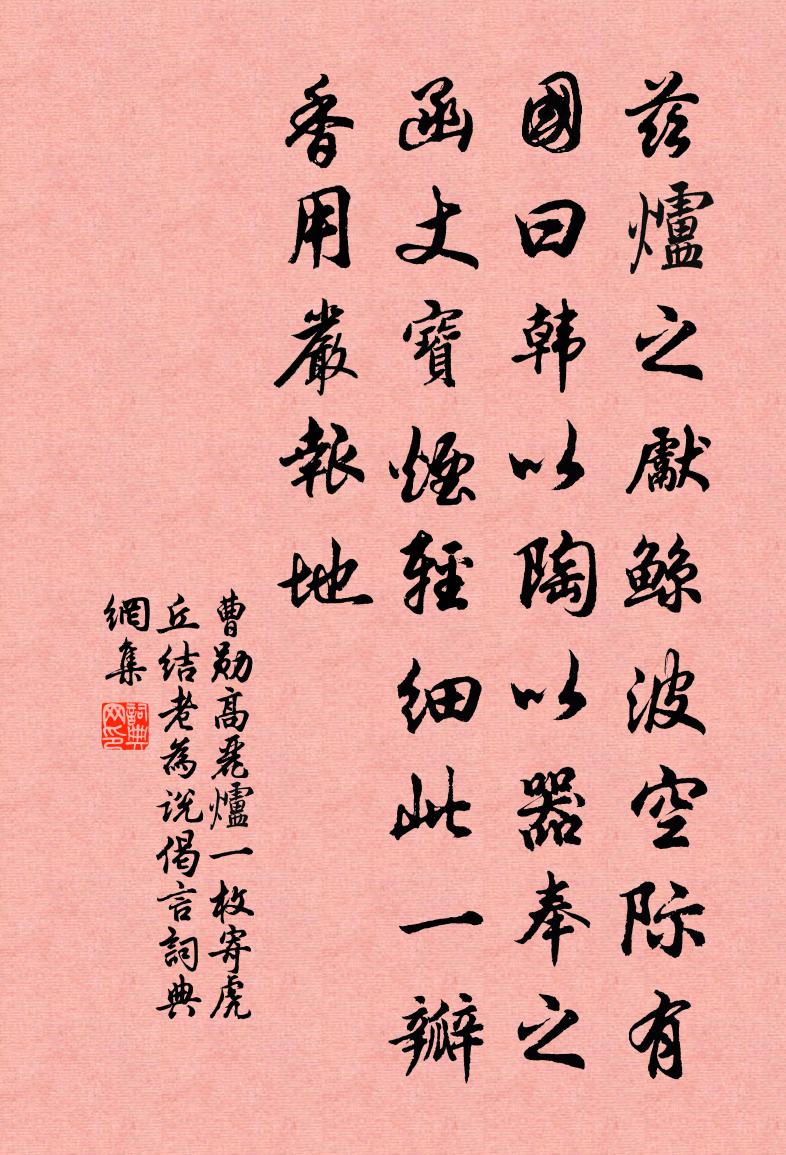 茲爐之獻鯨波空际有
國曰韩以陶以器奉之
函丈寶煙輕细此一瓣
香用嚴報地
曹勛高麗爐一枚寄虎
丘结老為说偈言詞典
網集
詞典网印